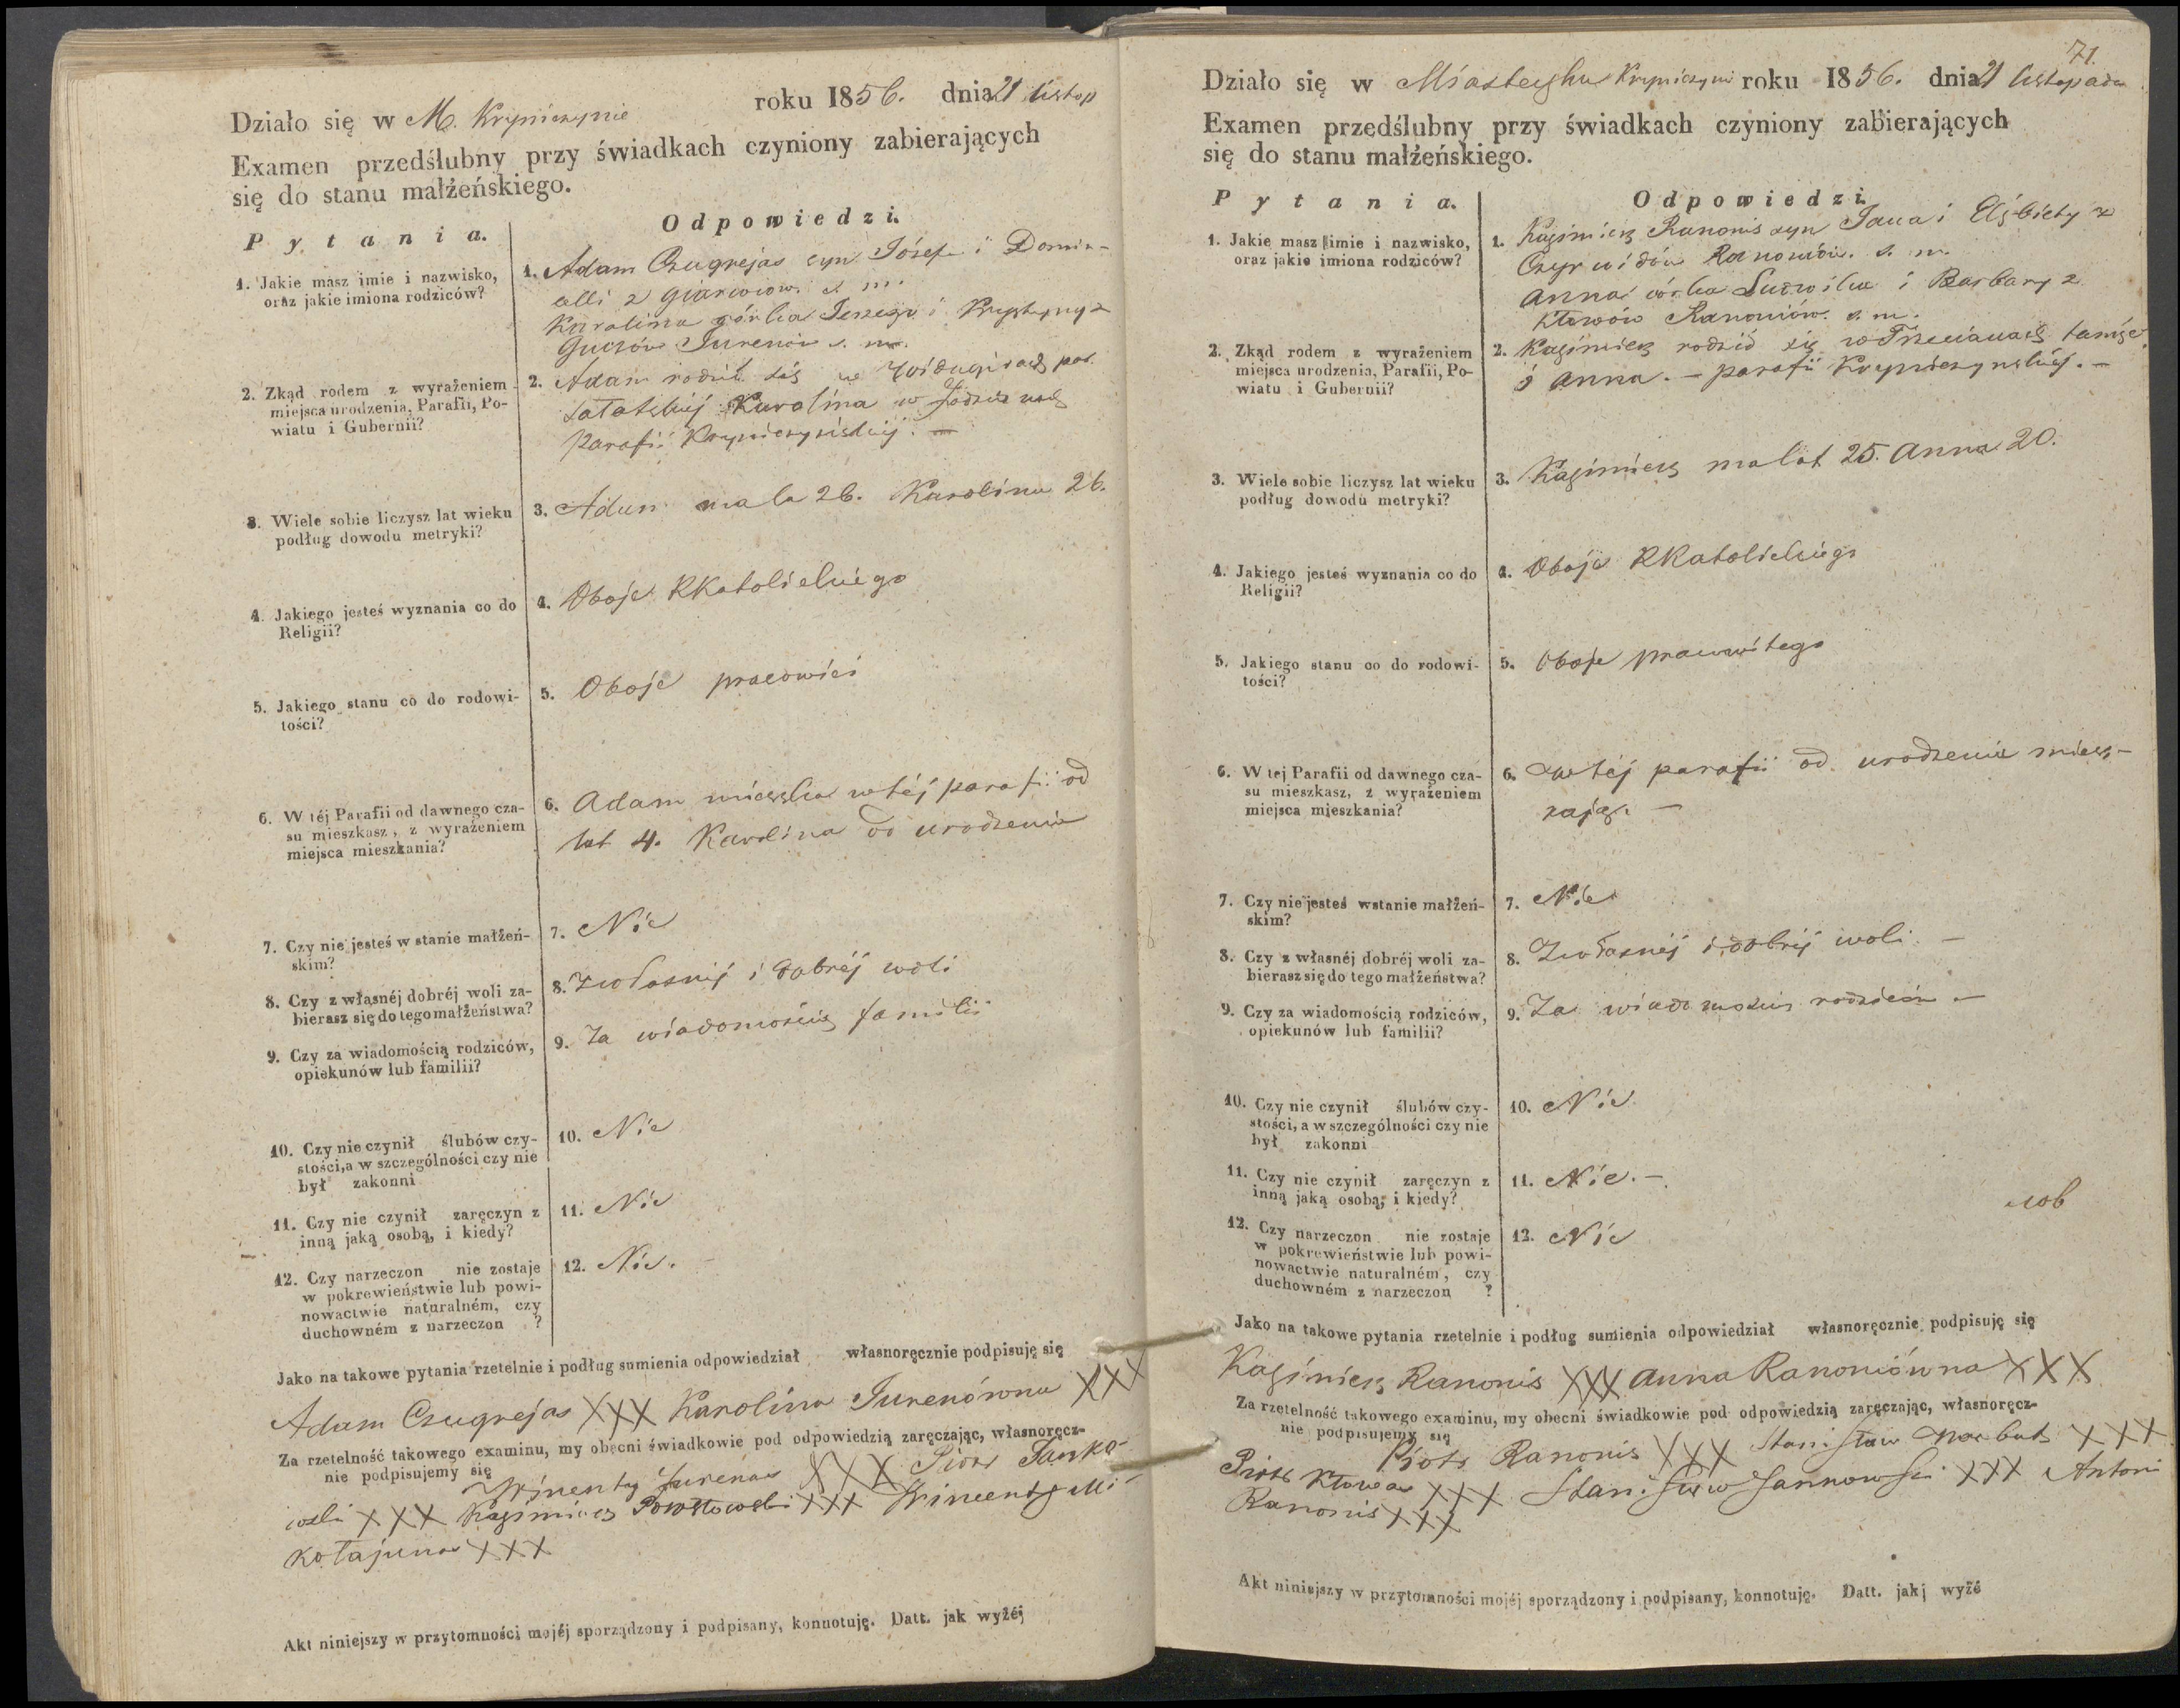 Działo się w M. Krypiczynie roku 1856. dnia 21 listop
Examen przedślubny przy świadkach czyniony zabierających
się do stanu małżeńskiego.
Pytania.
Odpowiedzi.
1. Jakie masz imie i nazwisko,
oraz jakie imiona rodziców?
1. Adam Czugrejas syn Józefa i Domic-
celli z
Karolina córka Jerzego i Krystyny z
Guczów Jurenów s. m.
2. Zkąd rodem z wyrażeniem
miejsca urodzenia, Parafii, Po-
wiatu i Gubernii?
2. Adam rodził się w par.
Karolina w
parafii
3. Wiele sobie liczysz lat wieku
podług dowodu metryki?
3. Adam ma la 26. Karolina 26.
4. Jakiego jesteś wyznania co do
Religii?
4. Oboje RKatolickiego
5. Jakiego stanu co do rodowi-
tości?
5. Oboje pracowici
6. W téj Parafii od dawnego cza-
su mieszkasz, z wyrażeniem
miejsca mieszkania?
6. Adam mieszka w téj parafii od
lat 4. Karolina od urodzenia
7. Czy nie jesteś w stanie małżeń-
skim?
7. Nie
8. Czy z własnéj dobréj woli za-
bierasz się do tego małżeństwa?
8. Z własnéj i dobréj woli
9. Czy za wiadomością rodziców,
opiekunów lub familii?
9. Za wiadomością familii
10. Czy nie czynił ślubów czy-
stości, a w szczególności czy nie
był zakonni
10. Nie
11. Czy nie czynił zaręczyn z
inną jaką osobą, i kiedy?
11. Nie
12. Czy narzeczon nie zostaje
w pokrewieństwie lub powi-
nowactwie naturalném, czy
duchowném z narzeczon ?
12. Nie. -
Jako na takowe pytania rzetelnie i podług sumienia odpowiedział własnoręcznie podpisuję się
Adam Czugrejas XXX Karolina Jurenówna XXX
Za rzetelność takowego examinu, my obecni świadkowie pod odpowiedzią zaręczając, własnoręcz-
nie podpisujemy się
Wincenty Jurenas XXX Piotr Janko-
wski XXX Kazimierz XXX Wincenty Mi-
kołajunas XXX
Akt niniejszy w przytomności mojéj sporządzony i podpisany, konnotuję. Datt. jak wyżéj
71.
Działo się w Miasteczku roku 1856. dnia 21 listopada
Examen przedślubny przy świadkach czyniony zabierających
się do stanu małżeńskiego.
Pytania.
Odpowiedzi.
1. Jakie masz imie i nazwisko,
oraz jakie imiona rodziców?
1. Kazimierz Ranonis syn Jana i Elżbiety z
Ranoniów. s. m.
Anna córka Ludwika i Barbary z
Ktowów Ranoniów. s. m.
2. Zkąd rodem z wyrażeniem
miejsca urodzenia, Parafii, Po-
wiatu i Gubernii?
2. Kazimierz rodził się w tamże
i Anna. - parafii
3. Wiele sobie liczysz lat wieku
podług dowodu metryki?
3. Kazimierz ma lat 25. Anna 20.
4. Jakiego jesteś wyznania co do
Religii?
4. Oboje RKatolickiego
5. Jakiego stanu co do rodowi-
tości?
5. Oboje pracowitego
6. W tej Parafii od dawnego cza-
su mieszkasz, z wyrażeniem
miejsca mieszkania?
6. W téj parafii od urodzenia miesz-
zają. -
7. Czy nie jesteś w stanie małżeń-
skim?
7. Nie
8. Czy z własnéj dobréj woli za-
bierasz się do tego małżeństwa?
8. Z własnéj i dobréj woli. -
9. Czy za wiadomością rodziców,
opiekunów lub familii?
9. Za wiadomością rodziców -
10. Czy nie czynił ślubów czy-
stości, a w szczególności czy nie
był zakonni
10. Nie
11. Czy nie czynił zaręczyn z
inną jaką osobą, i kiedy?
11. Nie. -
12. Czy narzeczon nie zostaje
w pokrewieństwie lub powi-
nowactwie naturalném, czy
duchowném z narzeczon ?
12. Nie
Jako na takowe pytania rzetelnie i podług sumienia odpowiedział własnoręcznie podpisuję się
Kazimierz Ranonis XXX Anna Ranoniówna XXX
Za rzetelność takowego examinu, my obecni świadkowie pod odpowiedzią zaręczając, własnoręcz-
nie podpisujemy się
Piotr Ranonis XXX Stanisław Narbut XXX
Piotr Ktowas XXX Stanisław Jannowski XXX Antoni
Ranonis XXX
Akt niniejszy w przytomności mojéj sporządzony i podpisany, konnotuję. Datt. jakj wyżé